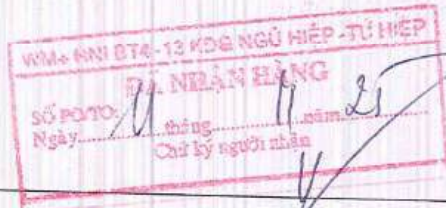 WM+ HNI BT4-13 KDG NGŨ HIỆP - TỨ HIỆP
ĐÃ NHẬN HÀNG
SỐ PO/TO:
Ngày 11 tháng 11 năm 25
Chữ ký người nhận